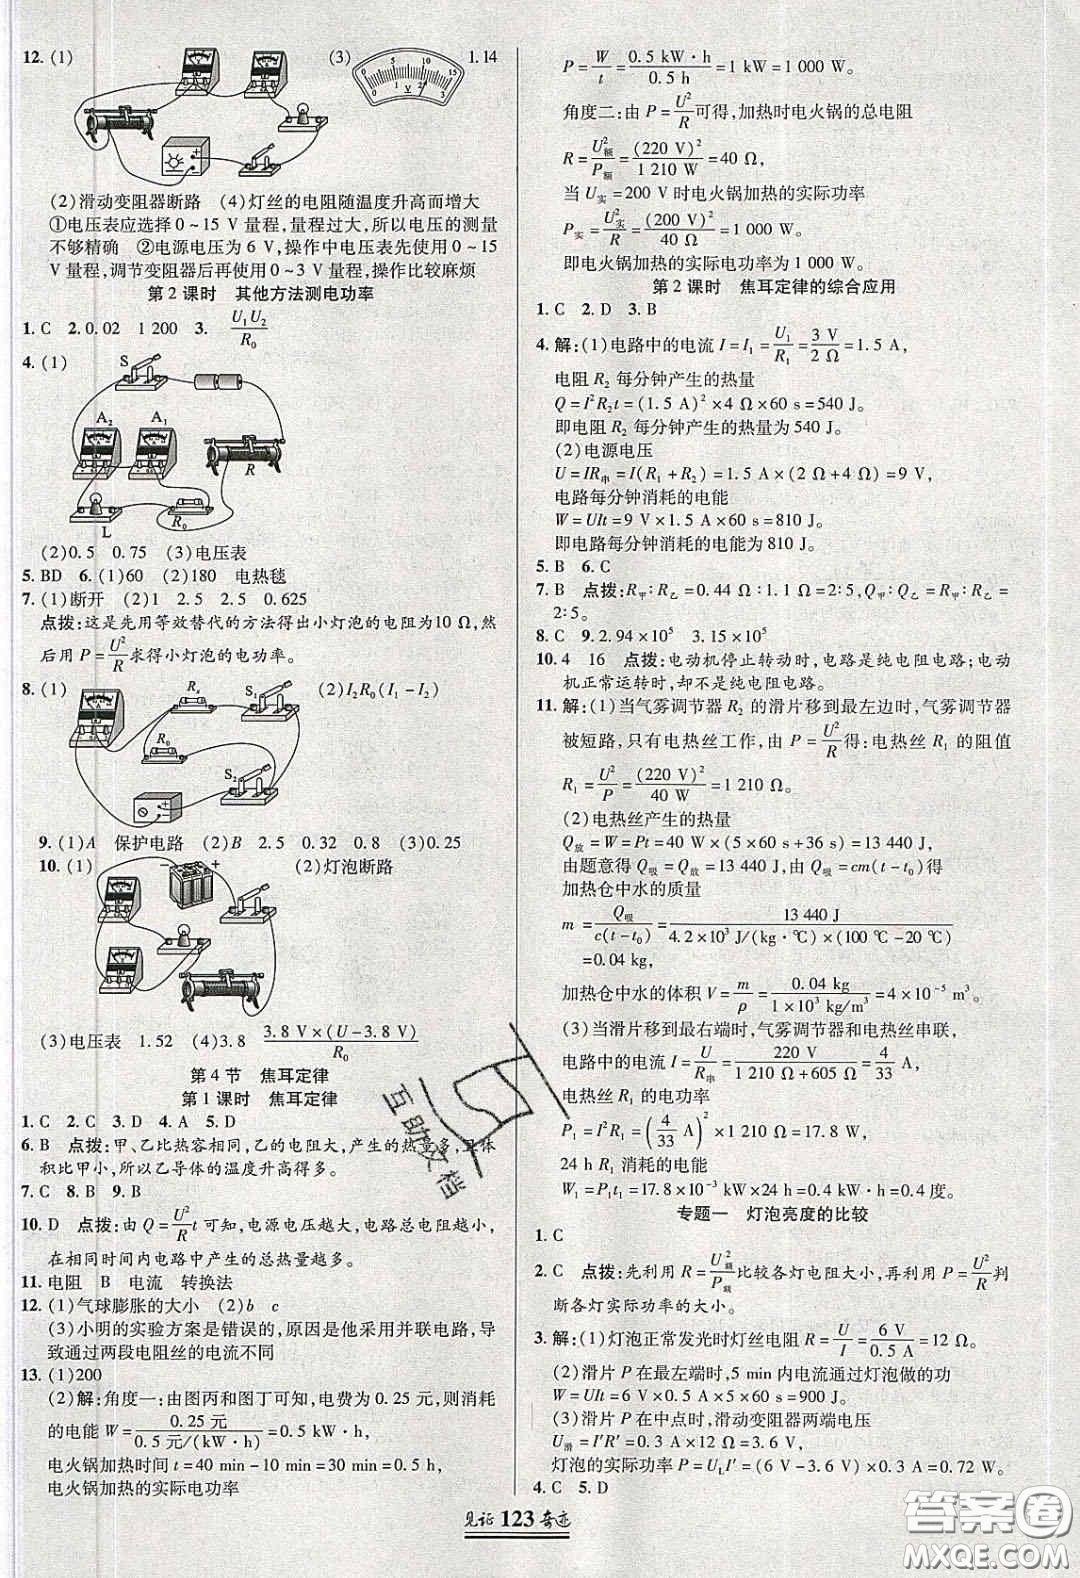 12. (1)
(3)
0 5 10 15
0 1 2 3
V
1.14
(2)滑动变阻器断路 (4)灯丝的电阻随温度升高而增大
①电压表应选择0～15 V量程,量程过大,所以电压的测量
不够精确 ②电源电压为6 V,操作中电压表先使用0～15
V量程,调节变阻器后再使用0～3 V量程,操作比较麻烦
第2课时 其他方法测电功率
1. C 2. 0.02 1 200 3. U₁U₂/R₀
4. (1)
S
A₂ A₁
R
L R₀
(2)0.5 0.75 (3)电压表
5. BD 6. (1)60 (2)180 电热毯
7. (1)断开 (2)1 2.5 2.5 0.625
点拨:这是先用等效替代的方法得出小灯泡的电阻为10 Ω,然
后用P=U²/R求得小灯泡的电功率。
8. (1)
Rₓ S₁
(2)I₂R₀(I₁－I₂)
R₀
S₂
9. (1)A 保护电路 (2)B 2.5 0.32 0.8 (3)0.25
10. (1)
－ ＋
(2)灯泡断路
(3)电压表 1.52 (4)3.8 3.8 V×(U－3.8 V)/R₀
第4节 焦耳定律
第1课时 焦耳定律
1. C 2. C 3. D 4. A 5. D
6. B 点拨:甲、乙比热容相同,乙的电阻大,产生的热量多,且体
积比甲小,所以乙导体的温度升高得多。
7. C 8. B 9. B
10. D 点拨:由Q=U²/R t可知,电源电压越大,电路总电阻越小,
在相同时间内电路中产生的总热量越多。
11. 电阻 B 电流 转换法
12. (1)气球膨胀的大小 (2)b c
(3)小明的实验方案是错误的,如果并联电路,导
致通过两段电阻丝的电流不同
13. (1)200
(2)解:角度一:由图丙和图丁可知,电费为0.25元,则消耗
的电能W=0.25元/0.5元/(kW·h)=0.5 kW·h,
电火锅加热时间t=40 min－10 min=30 min=0.5 h,
电火锅加热的实际电功率
P=W/t=0.5 kW·h/0.5 h=1 kW=1 000 W。
角度二:由P=U²/R可得,加热时电火锅的总电阻
R=U额²/P额=(220 V)²/1 210 W=40 Ω,
当U实=200 V时电火锅加热的实际功率
P实=U实²/R=(200 V)²/40 Ω=1 000 W。
即电火锅加热的实际电功率为1 000 W。
第2课时 焦耳定律的综合应用
1. C 2. D 3. B
4. 解:(1)电路中的电流I=I₁=U₁/R₁=3 V/2 Ω=1.5 A,
电阻R₂每分钟产生的热量
Q=I²R₂t=(1.5 A)²×4 Ω×60 s=540 J。
即电阻R₂每分钟产生的热量为540 J。
(2)电源电压
U=IR串=I(R₁+R₂)=1.5 A×(2 Ω+4 Ω)=9 V,
电路每分钟消耗的电能
W=UIt=9 V×1.5 A×60 s=810 J。
即电路每分钟消耗的电能为810 J。
5. B 6. C
7. B 点拨:R甲∶R乙=0.44 Ω∶1.1 Ω=2∶5,Q甲∶Q乙=R甲∶R乙=
2∶5。
8. C 9. 2.94×10⁵ 3.15×10⁵
10. 4 16 点拨:电动机停止转动时,电路是纯电阻电路;电动
机正常运转时,却不是纯电阻电路。
11. 解:(1)当气雾调节器R₂的滑片移到最左边时,气雾调节器
被短路,只有电热丝工作,由P=U²/R得:电热丝R₁的阻值
R₁=U²/P=(220 V)²/40 W=1 210 Ω。
(2)电热丝产生的热量
Q放=W=Pt=40 W×(5×60 s+36 s)=13 440 J,
由题意得Q吸=Q放=13 440 J,由Q吸=cm(t－t₀)得
加热仓中水的质量
m=Q吸/c(t－t₀)=13 440 J/4.2×10³ J/(kg·℃)×(100 ℃－20 ℃)
=0.04 kg,
加热仓中水的体积V=m/ρ=0.04 kg/1×10³ kg/m³=4×10⁻⁵ m³。
(3)当滑片移到最右端时,气雾调节器和电热丝串联,
电路中的电流I=U/R串=220 V/1 210 Ω+605 Ω=4/33 A,
电热丝R₁的电功率
P₁=I²R₁=(4/33 A)²×1 210 Ω=17.8 W,
24 h R₁消耗的电能
W₁=P₁t₁=17.8×10⁻³ kW×24 h=0.4 kW·h=0.4度。
专题一 灯泡亮度的比较
1. C
2. C 点拨:先利用R=U额²/P额比较各灯电阻大小,再利用P=U²/R判
断各灯实际功率的大小。
3. 解:(1)灯泡正常发光时灯丝电阻R=U/I=6 V/0.5 A=12 Ω。
(2)滑片P在最左端时,5 min内电流通过灯泡做的功
W=UIt=6 V×0.5 A×5×60 s=900 J。
(3)滑片P在中点时,滑动变阻器两端电压
U滑=I'R'=0.3 A×12 Ω=3.6 V,
灯泡的实际功率P=U_L I'=(6 V－3.6 V)×0.3 A=0.72 W。
4. C 5. D
见证 123 奇迹
互助文档
答案圈
MXQE.COM